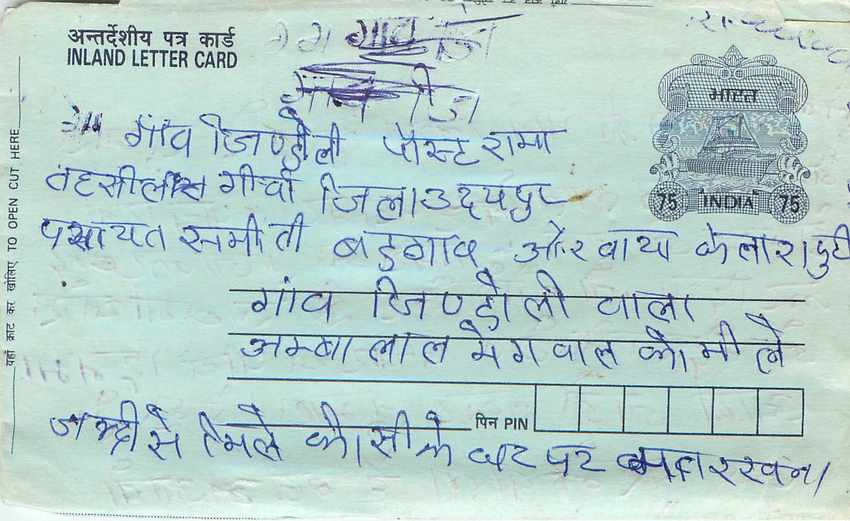 अन्तर्देशीय पत्र कार्ड
INLAND LETTER CARD
भारत
75 INDIA 75
गांव झिण्डोली पोस्ट रामा
तहसील गीर्वा जिला उदयपुर
पंचायत समीती बड़गाव और वाया केलाशपुरी
गांव झिण्डोली वाला
अम्बा लाल मेगवाल को मीले
पिन PIN
जल्दी से मिले कीसी के घर पर मत रखना
यहाँ काट कर खोलिए TO OPEN CUT HERE